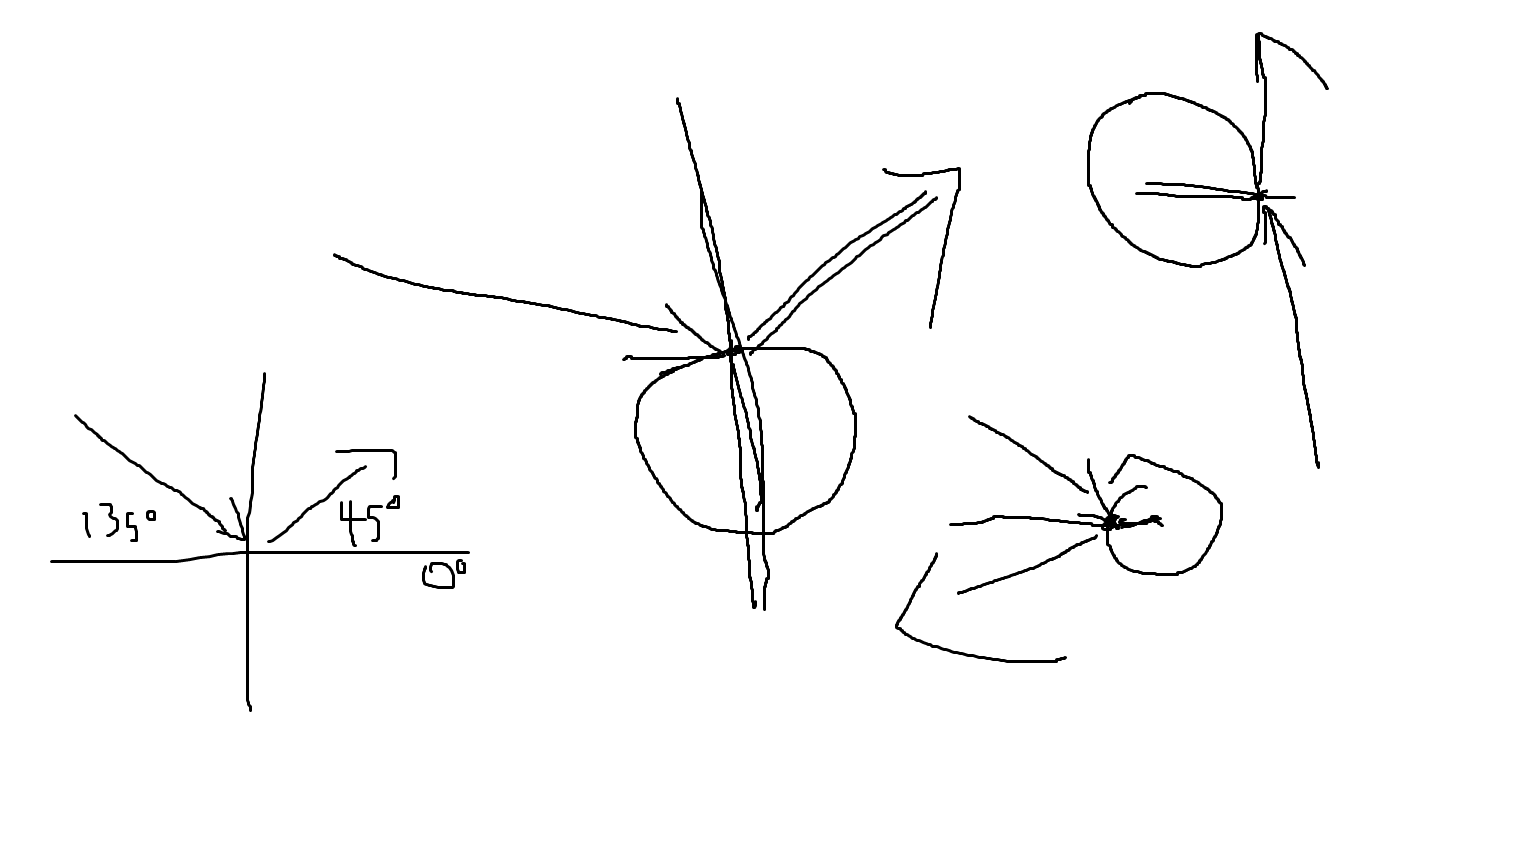 135°
45°
0°